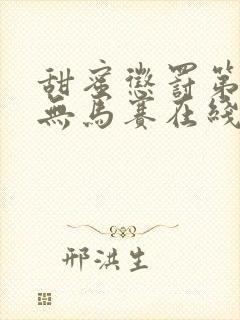 甜蜜懲罰第
無馬賽在綫
邢洪生